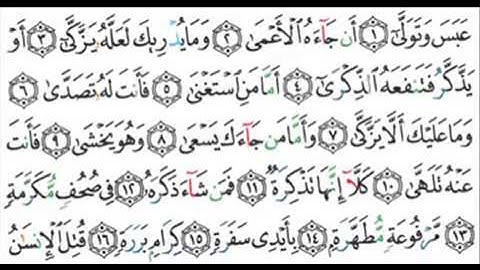 عَبَسَ وَتَوَلَّىٰٓ ١ أَن جَآءَهُ ٱلۡأَعۡمَىٰ ٢ وَمَا يُدۡرِيكَ لَعَلَّهُۥ يَزَّكَّىٰٓ ٣ أَوۡ
يَذَّكَّرُ فَتَنفَعَهُ ٱلذِّكۡرَىٰٓ ٤ أَمَّا مَنِ ٱسۡتَغۡنَىٰ ٥ فَأَنتَ لَهُۥ تَصَدَّىٰ ٦
وَمَا عَلَيۡكَ أَلَّا يَزَّكَّىٰ ٧ وَأَمَّا مَن جَآءَكَ يَسۡعَىٰ ٨ وَهُوَ يَخۡشَىٰ ٩ فَأَنتَ
عَنۡهُ تَلَهَّىٰ ١٠ كَلَّآ إِنَّهَا تَذۡكِرَةٞ ١١ فَمَن شَآءَ ذَكَرَهُۥ ١٢ فِي صُحُفٖ مُّكَرَّمَةٖ
١٣ مَّرۡفُوعَةٖ مُّطَهَّرَةِۭ ١٤ بِأَيۡدِي سَفَرَةٖ ١٥ كِرَامِۭ بَرَرَةٖ ١٦ قُتِلَ ٱلۡإِنسَٰنُ